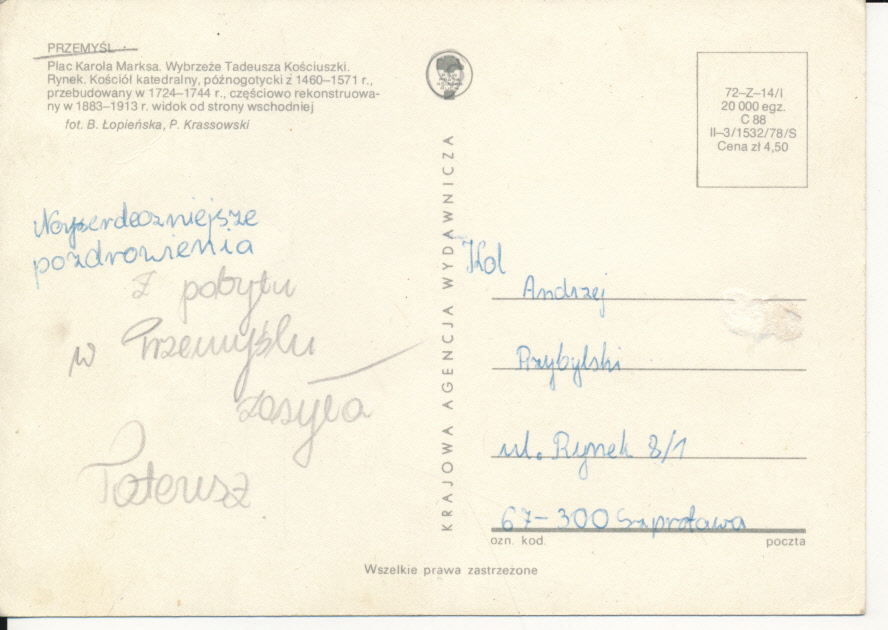 PRZEMYŚL
Plac Karola Marksa. Wybrzeże Tadeusza Kościuszki.
Rynek. Kościół katedralny, późnogotycki z 1460—1571 r.,
przebudowany w 1724—1744 r., częściowo rekonstruowa-
ny w 1883—1913 r. widok od strony wschodniej
fot. B. Łopieńska, P. Krassowski
Najserdeczniejsze
pozdrowienia
z pobytu
w Przemyślu
zasyła
KRAJOWA AGENCJA WYDAWNICZA
72—Z—14/I
20 000 egz.
C 88
II—3/1532/78/S
Cena zł 4,50
Kol
Andrzej
Przybylski
ul. Rynek 8/1
67-300 Szprotawa
ozn. kod.
poczta
Wszelkie prawa zastrzeżone